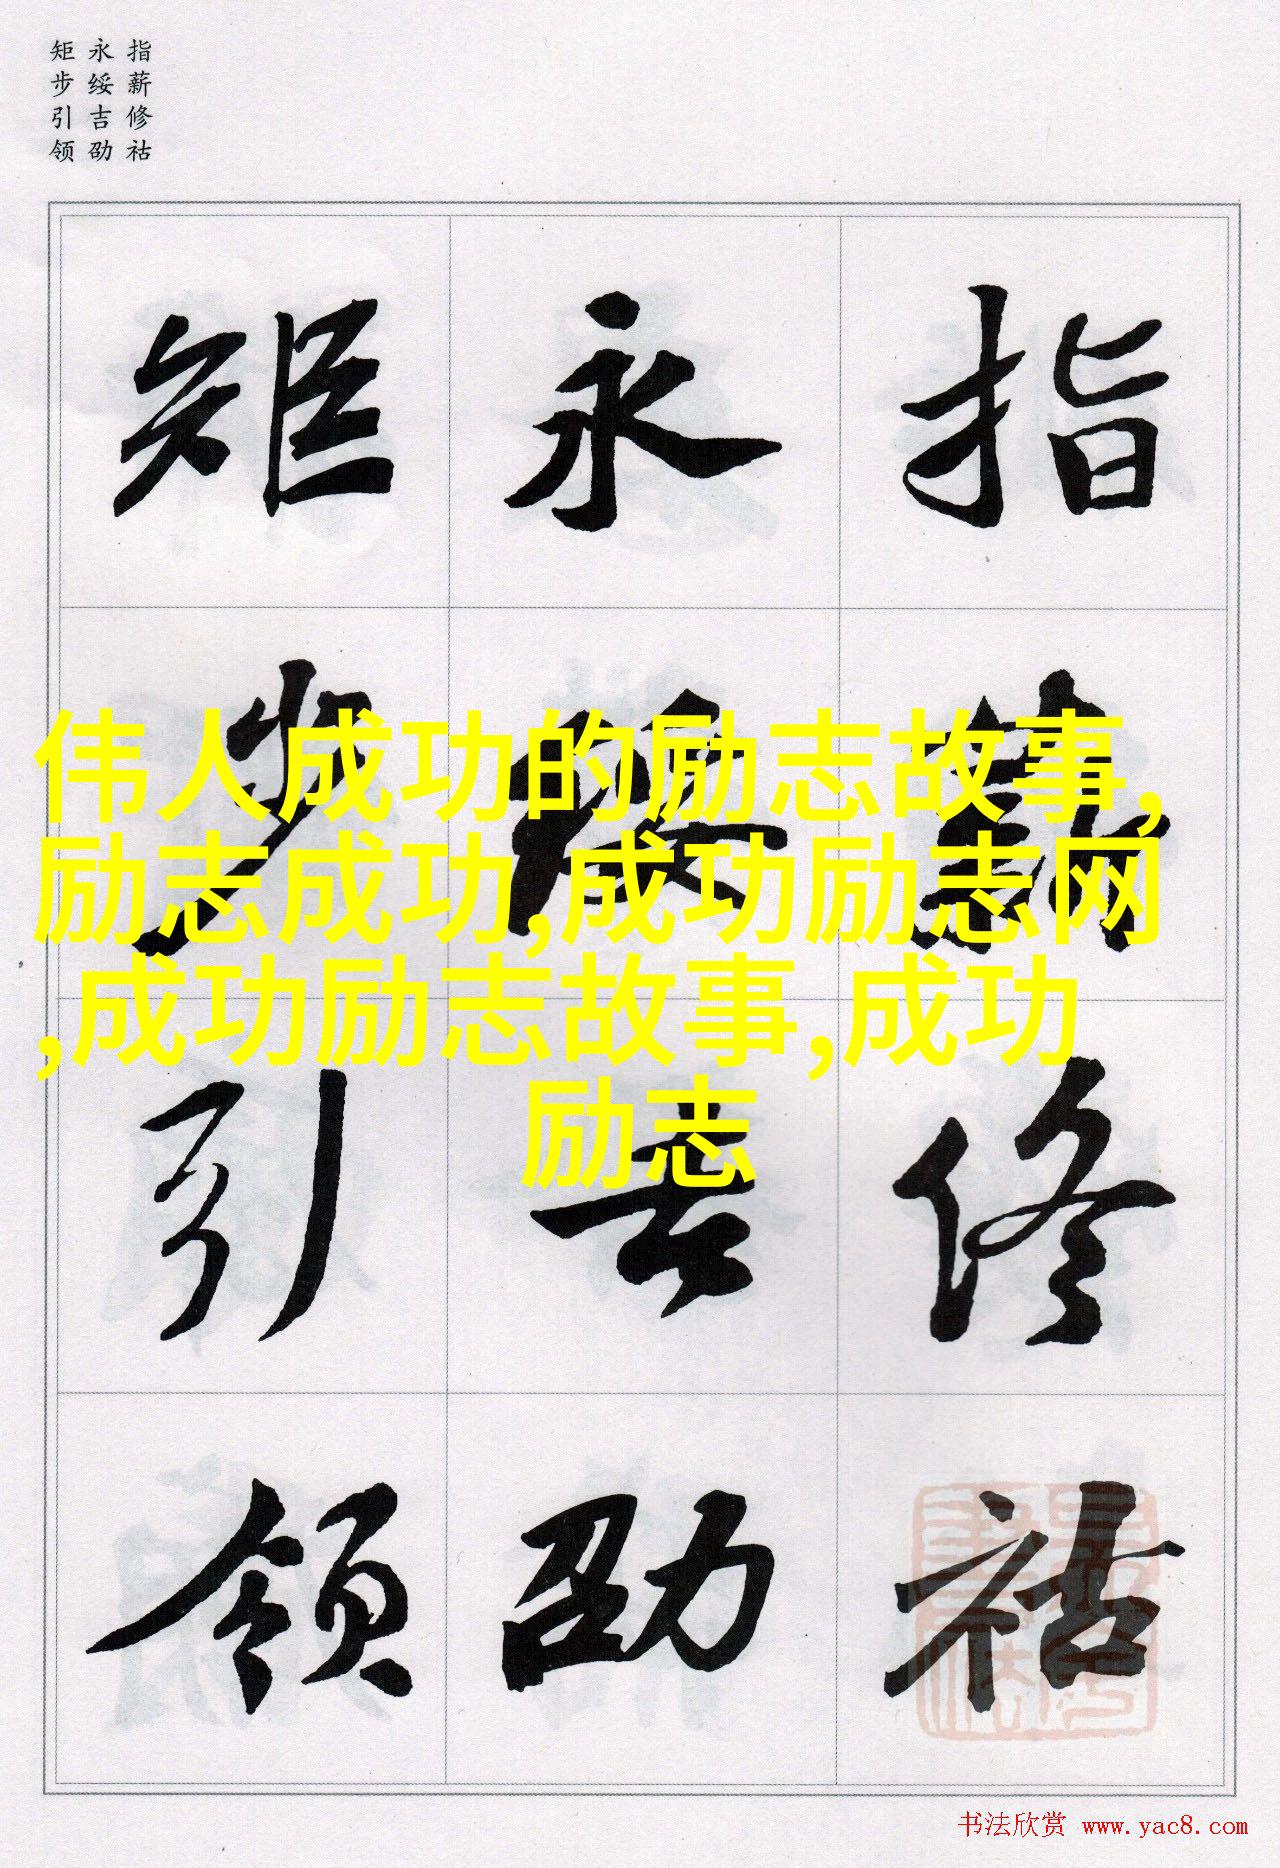 指薪修祜
永绥吉劭
矩步引领
指薪修祜
永绥吉劭
矩步引领
伟人成功的励志故事,
励志成功,成功励志网
,成功励志故事,成功
励志
书法欣赏 www.yac8.com